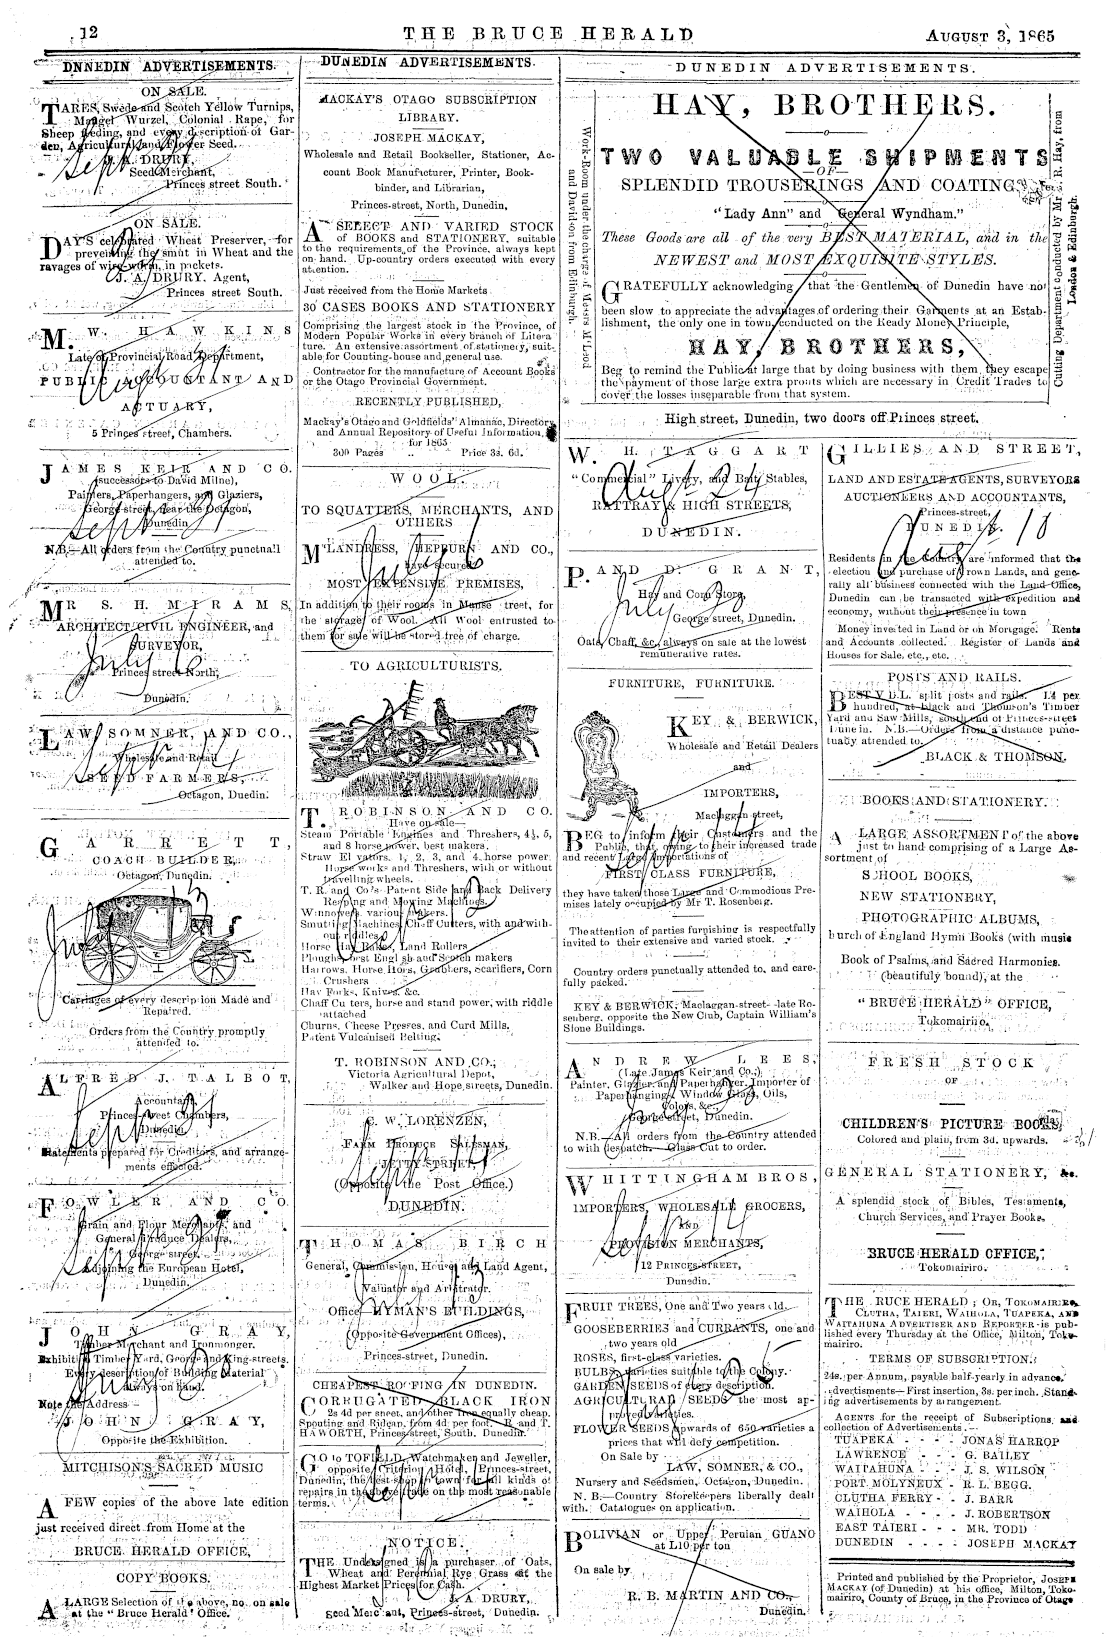 12
THE BRUCE HERALD
AUGUST 3, 1865
DNNEDIN ADVERTISEMENTS.
ON SALE.
TARES, Swede and Scotch Yellow Turnips,
Mangel Wurzel, Colonial Rape, for
Sheep feeding, and every description of Gar-
den, Agricultural and Flower Seed.
A. DRURY,
Seed Merchant,
Princes street South.
ON SALE.
DAY'S celebrated Wheat Preserver, for
preventing the smut in Wheat and the
ravages of wire-worm, in pockets.
A. DRURY. Agent,
Princes street South.
M. W. HAWKINS
Late of Provincial Road Department,
PUBLIC ACCOUNTANT AND
ACTUARY,
5 Princes street, Chambers.
JAMES KEIR AND CO.
(successors to David Milne),
Painters, Paperhangers, and Glaziers,
George street, near the Octagon,
Dunedin
N.B.—All orders from the Country punctuall
attended to.
MR S. H. MIRAMS,
ARCHITECT CIVIL ENGINEER, and
SURVEYOR,
Princes street North,
Dunedin.
LAW SOMNER, AND CO.,
Wholesale and Retail
SEED FARMERS,
Octagon, Duedin.
GARRETT,
COACH BUILDER,
Octagon, Dunedin.
Carriages of every description Made and
Repaired.
Orders from the Country promptly
attended to.
ALFRED J. TALBOT,
Accountant,
Princes street Chambers,
Dunedin
Statements prepared for Creditors, and arrange-
ments effected.
FOWLER AND CO.
Grain and Flour Merchants, and
General Produce Dealers,
George street,
Adjoining the European Hotel,
Dunedin.
JOHN GRAY,
Timber Merchant and Ironmonger.
Exhibition Timber Yard, George and King-streets.
Every description of Building Material
always on hand.
Note the Address
JOHN GRAY,
Opposite the Exhibition.
MITCHISON'S SACRED MUSIC
A FEW copies of the above late edition
just received direct from Home at the
BRUCE HERALD OFFICE,
COPY BOOKS.
A LARGE Selection of the above, now on sale
at the "Bruce Herald" Office.
DUNEDIN ADVERTISEMENTS.
MACKAY'S OTAGO SUBSCRIPTION
LIBRARY.
JOSEPH MACKAY,
Wholesale and Retail Bookseller, Stationer, Ac-
count Book Manufacturer, Printer, Book-
binder, and Librarian,
Princes-street, North, Dunedin,
A SELECT AND VARIED STOCK
of BOOKS and STATIONERY, suitable
to the requirements of the Province, always kept
on hand. Up-country orders executed with every
attention.
Just received from the Home Markets
30 CASES BOOKS AND STATIONERY
Comprising the largest stock in the Province, of
Modern Popular Works in every branch of Litera
ture. An extensive assortment of stationery, suit-
able for Counting-house and general use.
Contractor for the manufacture of Account Books
or the Otago Provincial Government.
RECENTLY PUBLISHED,
Mackay's Otago and Goldfields' Almanac, Directory
and Annual Repository of Useful Information,
for 1865
300 Pages .. Price 3s. 6d.
WOOL.
TO SQUATTERS, MERCHANTS, AND
OTHERS
M'LANDRESS, HEPBURN AND CO.,
have secured
MOST EXPENSIVE PREMISES,
In addition to their rooms in Manse treet, for
the storage of Wool. All Wool entrusted to
them for sale will be stored free of charge.
TO AGRICULTURISTS.
T. ROBINSON AND CO.
Have on sale—
Steam Portable Engines and Threshers, 4½, 5,
and 8 horse power, best makers.
Straw El vators, 1, 2, 3, and 4 horse power.
Horse works and Threshers, with or without
travelling wheels.
T. R. and Co's Patent Side and Back Delivery
Reaping and Mowing Machines.
Winnowers various makers.
Smutting Machines, Chaff Cutters, with and with-
out riddles
Horse Hay Rakes, Land Rollers
Ploughs, best English and Scotch makers
Harrows, Horse Hoes, Grubbers, Scarifiers, Corn
Crushers
Hay Forks, Knives, &c.
Chaff Cutters, horse and stand power, with riddle
attached
Churns, Cheese Presses, and Curd Mills.
Patent Vulcanised Belting.
T. ROBINSON AND CO.,
Victoria Agricultural Depot,
Walker and Hope streets, Dunedin.
C. W. LORENZEN,
FARM PRODUCE SALESMAN,
JETTY STREET,
(Opposite the Post Office.)
DUNEDIN.
THOMAS BIRCH
General, Commission, House and Land Agent,
Valuator and Arbitrator.
Office HYMAN'S BUILDINGS,
(Opposite Government Offices),
Princes-street, Dunedin.
CHEAPEST ROOFING IN DUNEDIN.
CORRUGATED BLACK IRON
2s 4d per sheet, and other iron equally cheap.
Spouting and Ridging, from 4d per foot. R. and T.
HAWORTH, Princes street, South. Dunedin.
GO to TOFIELD, Watchmaker and Jeweller,
opposite Criterion Hotel, Princes-street,
Dunedin, the best shop in town for all kinds of
repairs in the above trade on the most reasonable
terms.
NOTICE.
THE Undersigned is a purchaser of Oats,
Wheat and Perennial Rye Grass at the
Highest Market Prices for Cash.
A. DRURY,
Seed Merchant, Princes-street, Dunedin.
DUNEDIN ADVERTISEMENTS.
HAY, BROTHERS.
Work-Room under the charge of Messrs M'Leod
and Davidson from Edinburgh.
TWO VALUABLE SHIPMENTS
—OF—
SPLENDID TROUSERINGS AND COATINGS
"Lady Ann" and General Wyndham."
These Goods are all of the very BEST MATERIAL, and in the
NEWEST and MOST EXQUISITE STYLES.
GRATEFULLY acknowledging that the Gentlemen of Dunedin have not
been slow to appreciate the advantages of ordering their Garments at an Estab-
lishment, the only one in town, conducted on the Ready Money Principle,
HAY, BROTHERS,
Beg to remind the Public at large that by doing business with them they escape
the payment of those large extra profits which are necessary in Credit Trades to
cover the losses inseparable from that system.
Cutting Department conducted by Mr. R. Hay, from
London & Edinburgh.
High street, Dunedin, two doors off Princes street.
W. H. TAGGART
"Commercial" Livery, and Bait Stables,
RATTRAY & HIGH STREETS,
DUNEDIN.
P. AND D. GRANT,
Hay and Corn Store,
George street, Dunedin.
Oats, Chaff, &c., always on sale at the lowest
remunerative rates.
FURNITURE, FURNITURE.
KEY & BERWICK,
Wholesale and Retail Dealers
and
IMPORTERS,
Maclaggan street,
BEG to inform their Customers and the
Public, that owing to their increased trade
and recent Large Importations of
FIRST CLASS FURNITURE,
they have taken those Large and Commodious Pre-
mises lately occupied by Mr T. Rosenberg.
The attention of parties furnishing is respectfully
invited to their extensive and varied stock.
Country orders punctually attended to, and care-
fully packed.
KEY & BERWICK, Maclaggan-street—late Ro-
senberg, opposite the New Club, Captain William's
Stone Buildings.
ANDREW LEES,
(Late James Keir and Co.),
Painter, Glazier, and Paperhanger. Importer of
Paperhangings, Window Glass, Oils,
Colors, &c.,
George street, Dunedin.
N.B.—All orders from the Country attended
to with despatch.—Glass Cut to order.
WHITTINGHAM BROS,
IMPORTERS, WHOLESALE GROCERS,
AND
PROVISION MERCHANTS,
12 PRINCES-STREET,
Dunedin.
FRUIT TREES, One and Two years old.
GOOSEBERRIES and CURRANTS, one and
two years old
ROSES, first-class varieties.
BULBS, varieties suitable to the Colony.
GARDEN SEEDS of every description.
AGRICULTURAL SEEDS the most ap-
proved varieties.
FLOWER SEEDS upwards of 650 varieties a
prices that will defy competition.
On Sale by
LAW, SOMNER, & CO.,
Nursery and Seedsmen, Octagon, Dunedin.
N. B.—Country Storekeepers liberally dealt
with. Catalogues on application.
BOLIVIAN or Upper Peruian GUANO
at L10 per ton
On sale by
R. B. MARTIN AND CO.,
Dunedin.
GILLIES AND STREET,
LAND AND ESTATE AGENTS, SURVEYORS
AUCTIONEERS AND ACCOUNTANTS,
Princes-street,
DUNEDIN.
Residents in the Country are informed that the
election and purchase of Crown Lands, and gene-
rally all business connected with the Land Office,
Dunedin can be transacted with expedition and
economy, without their presence in town
Money invested in Land or on Morgage. Rents
and Accounts collected. Register of Lands and
Houses for Sale, etc., etc.
POSTS AND RAILS.
BEST V.D.L. split posts and rails. L4 per
hundred, at Black and Thomson's Timber
Yard and Saw Mills, south end of Princes-street
Dunedin. N.B.—Orders from a distance punc-
tually attended to.
BLACK & THOMSON.
BOOKS AND STATIONERY.
A LARGE ASSORTMENT of the above
just to hand comprising of a Large As-
sortment of
SCHOOL BOOKS,
NEW STATIONERY,
PHOTOGRAPHIC ALBUMS,
hurch of England Hymn Books (with music
Book of Psalms, and Sacred Harmonies.
(beautifuly bound), at the
"BRUCE HERALD" OFFICE,
Tokomairiro.
FRESH STOCK
OF
CHILDREN'S PICTURE BOOKS,
Colored and plain, from 3d. upwards.
GENERAL STATIONERY, &c.
A splendid stock of Bibles, Testaments,
Church Services, and Prayer Books,
BRUCE HERALD OFFICE,
Tokomairiro.
THE RUCE HERALD; OR, TOKOMAIRIRO,
CLUTHA, TAIERI, WAIHOLA, TUAPEKA, AND
WAITAHUNA ADVERTISER AND REPORTER is pub-
lished every Thursday at the Office, Milton, Toko-
mairiro.
TERMS OF SUBSCRIPTION.
24s. per Annum, payable half-yearly in advance.
dvertisments—First insertion, 3s. per inch. Stand-
ing advertisements by arrangement.
AGENTS for the receipt of Subscriptions and
collection of Advertisements.—
TUAPEKA - - - JONAS HARROP
LAWRENCE - - - G. RAILEY
WAITAHUNA - - - J. S. WILSON
PORT MOLYNEUX - R. L. BEGG.
CLUTHA FERRY - - J. BARR
WAIHOLA - - - - J. ROBERTSON
EAST TAIERI - - - MR. TODD
DUNEDIN - - - - JOSEPH MACKAY
Printed and published by the Proprietor, JOSEPH
MACKAY (of Dunedin) at his office, Milton, Toko-
mairiro, County of Bruce, in the Province of Otago